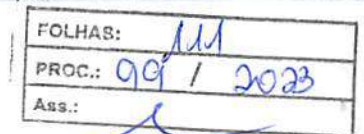 FOLHAS: 111
PROC.: 99 / 2023
Ass.: